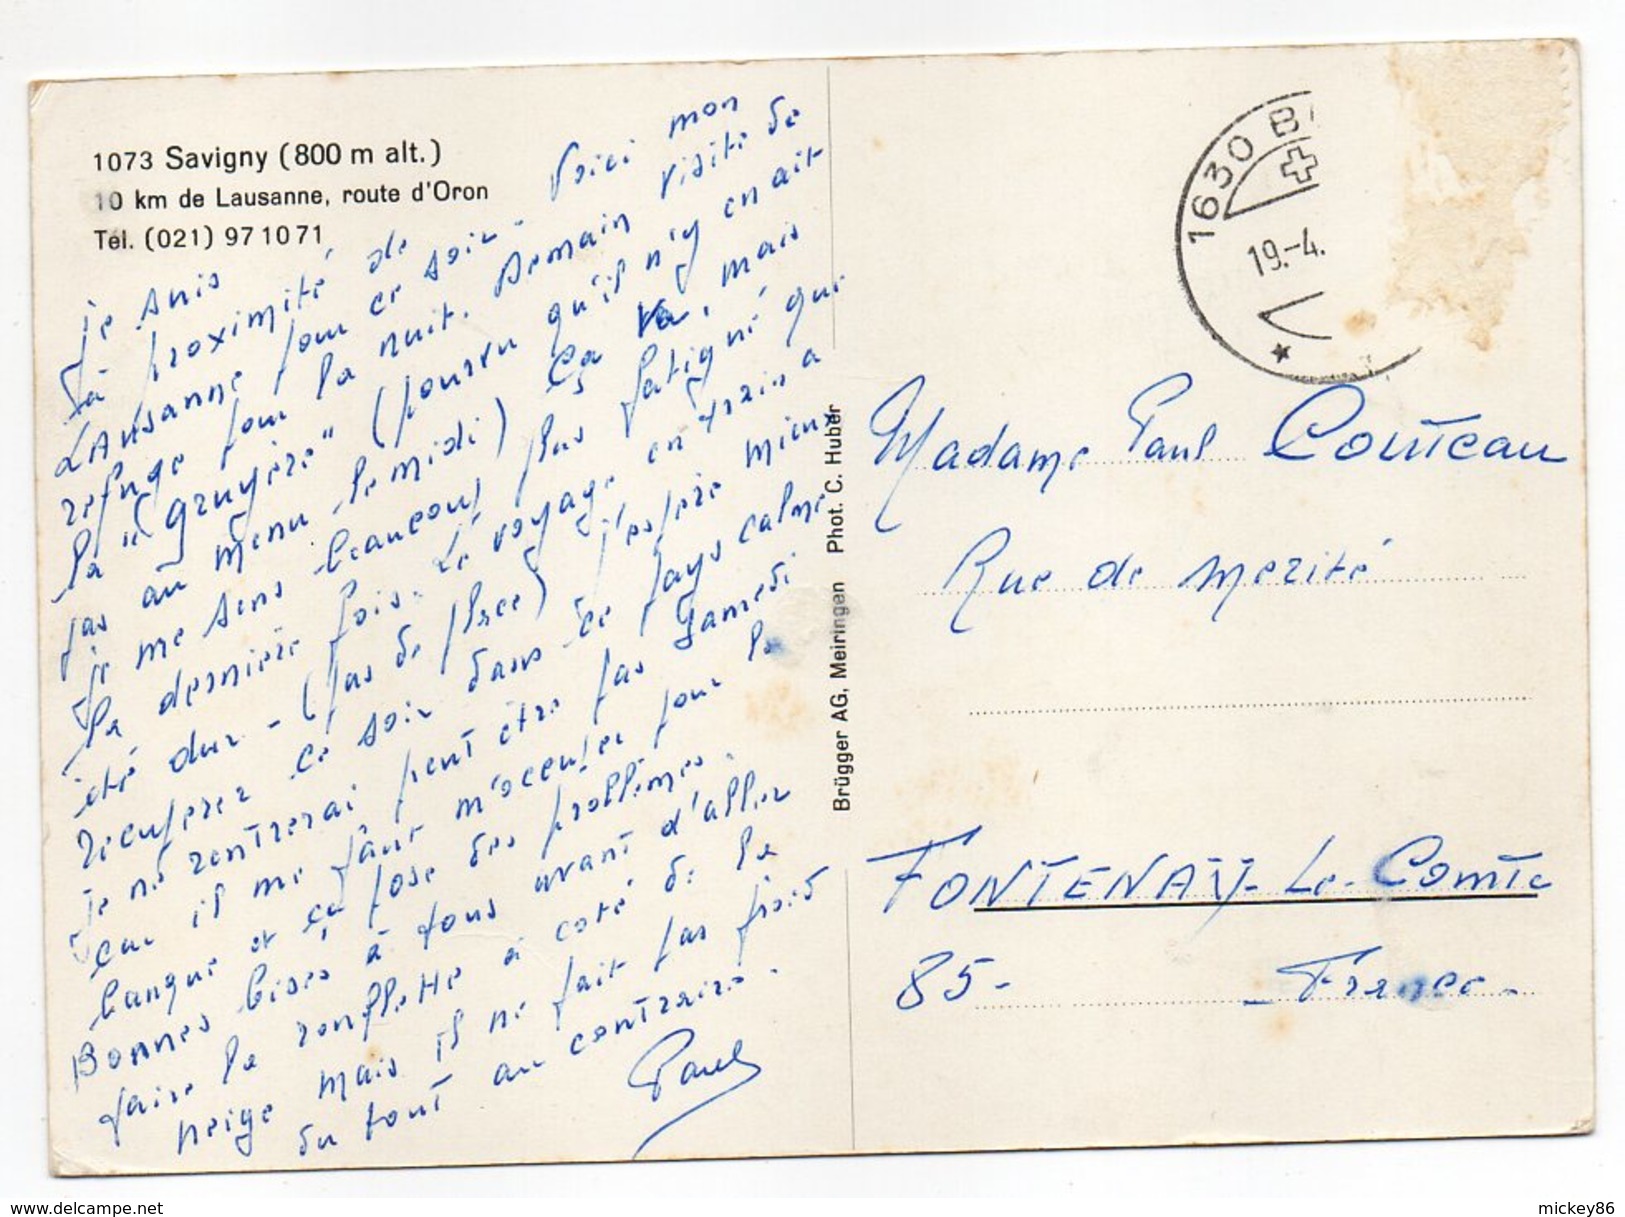 1073 Savigny (800 m alt.)
10 km de Lausanne, route d'Oron
Tél. (021) 97 10 71
Je suis
là proximité de
Lausanne pour ce soir. Voici mon
refuge pour la nuit. Demain visite de
la "Gruyère" (pourvu qu'il n'y en ait
pas au menu le midi) ça va, mais
je me sens beaucoup plus fatigué que
la dernière fois. Le voyage en train a
été dur - (pas de place) j'espère mieux
recuperer ce soir dans ce pays calme
Je ne rentrerai peut être pas samedi
car il me faut m'occuper pour la
banque et ça pose des problèmes.
Bonnes bises à tous avant d'aller
faire la ronflette à coté de la
neige mais il ne fait pas froid
du tout au contraire.
Paul
Brügger AG, Meiringen Phot. C. Huber
1630 B
19.-4.
Madame Paul Couteau
Rue de Merité
FONTENAY-Le-Comte
85- - France -
mickey86